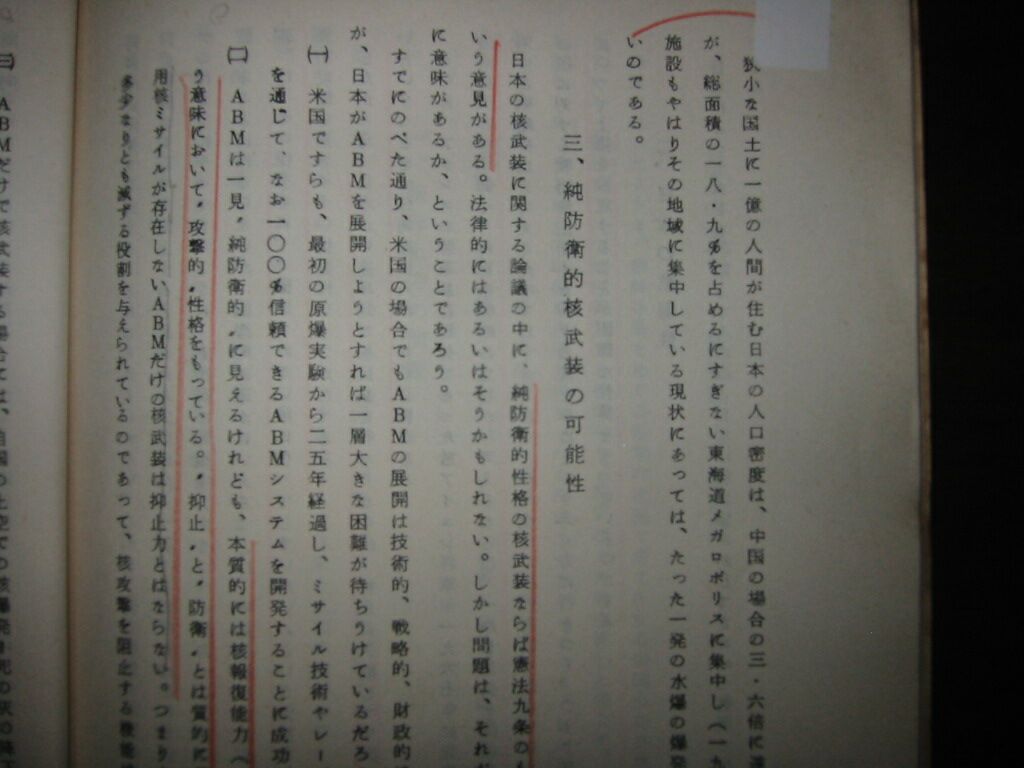 狭小な国土に一億の人間が住む日本の人口密度は、中国の場合の三・六倍に達
が、総面積の一八・九%を占めるにすぎない東海道メガロポリスに集中し(一九
施設もやはりその地域に集中している現状にあっては、たった一発の水爆の爆発
いのである。
三、純防衛的核武装の可能性
日本の核武装に関する論議の中に、純防衛的性格の核武装ならば憲法九条のも
いう意見がある。法律的にはあるいはそうかもしれない。しかし問題は、それが
に意味があるか、ということであろう。
すでにのべた通り、米国の場合でもABMの展開は技術的、戦略的、財政的に
が、日本がABMを展開しようとすれば一層大きな困難が待ちうけているだろ
(一) 米国ですらも、最初の原爆実験から二五年経過し、ミサイル技術やレー
を通じて、なお一〇〇%信頼できるABMシステムを開発することに成功
(二) ABMは一見〝純防衛的〟に見えるけれども、本質的には核報復能力(
う意味において〝攻撃的〟性格をもっている。〝抑止〟と〝防衛〟とは質的に
用核ミサイルが存在しないABMだけの核武装は抑止力とはならない。つまり
多少なりとも減ずる役割を与えられているのであって、核攻撃を阻止する機能
(三) ABMだけで核武装する場合には、自国の上空での核爆発